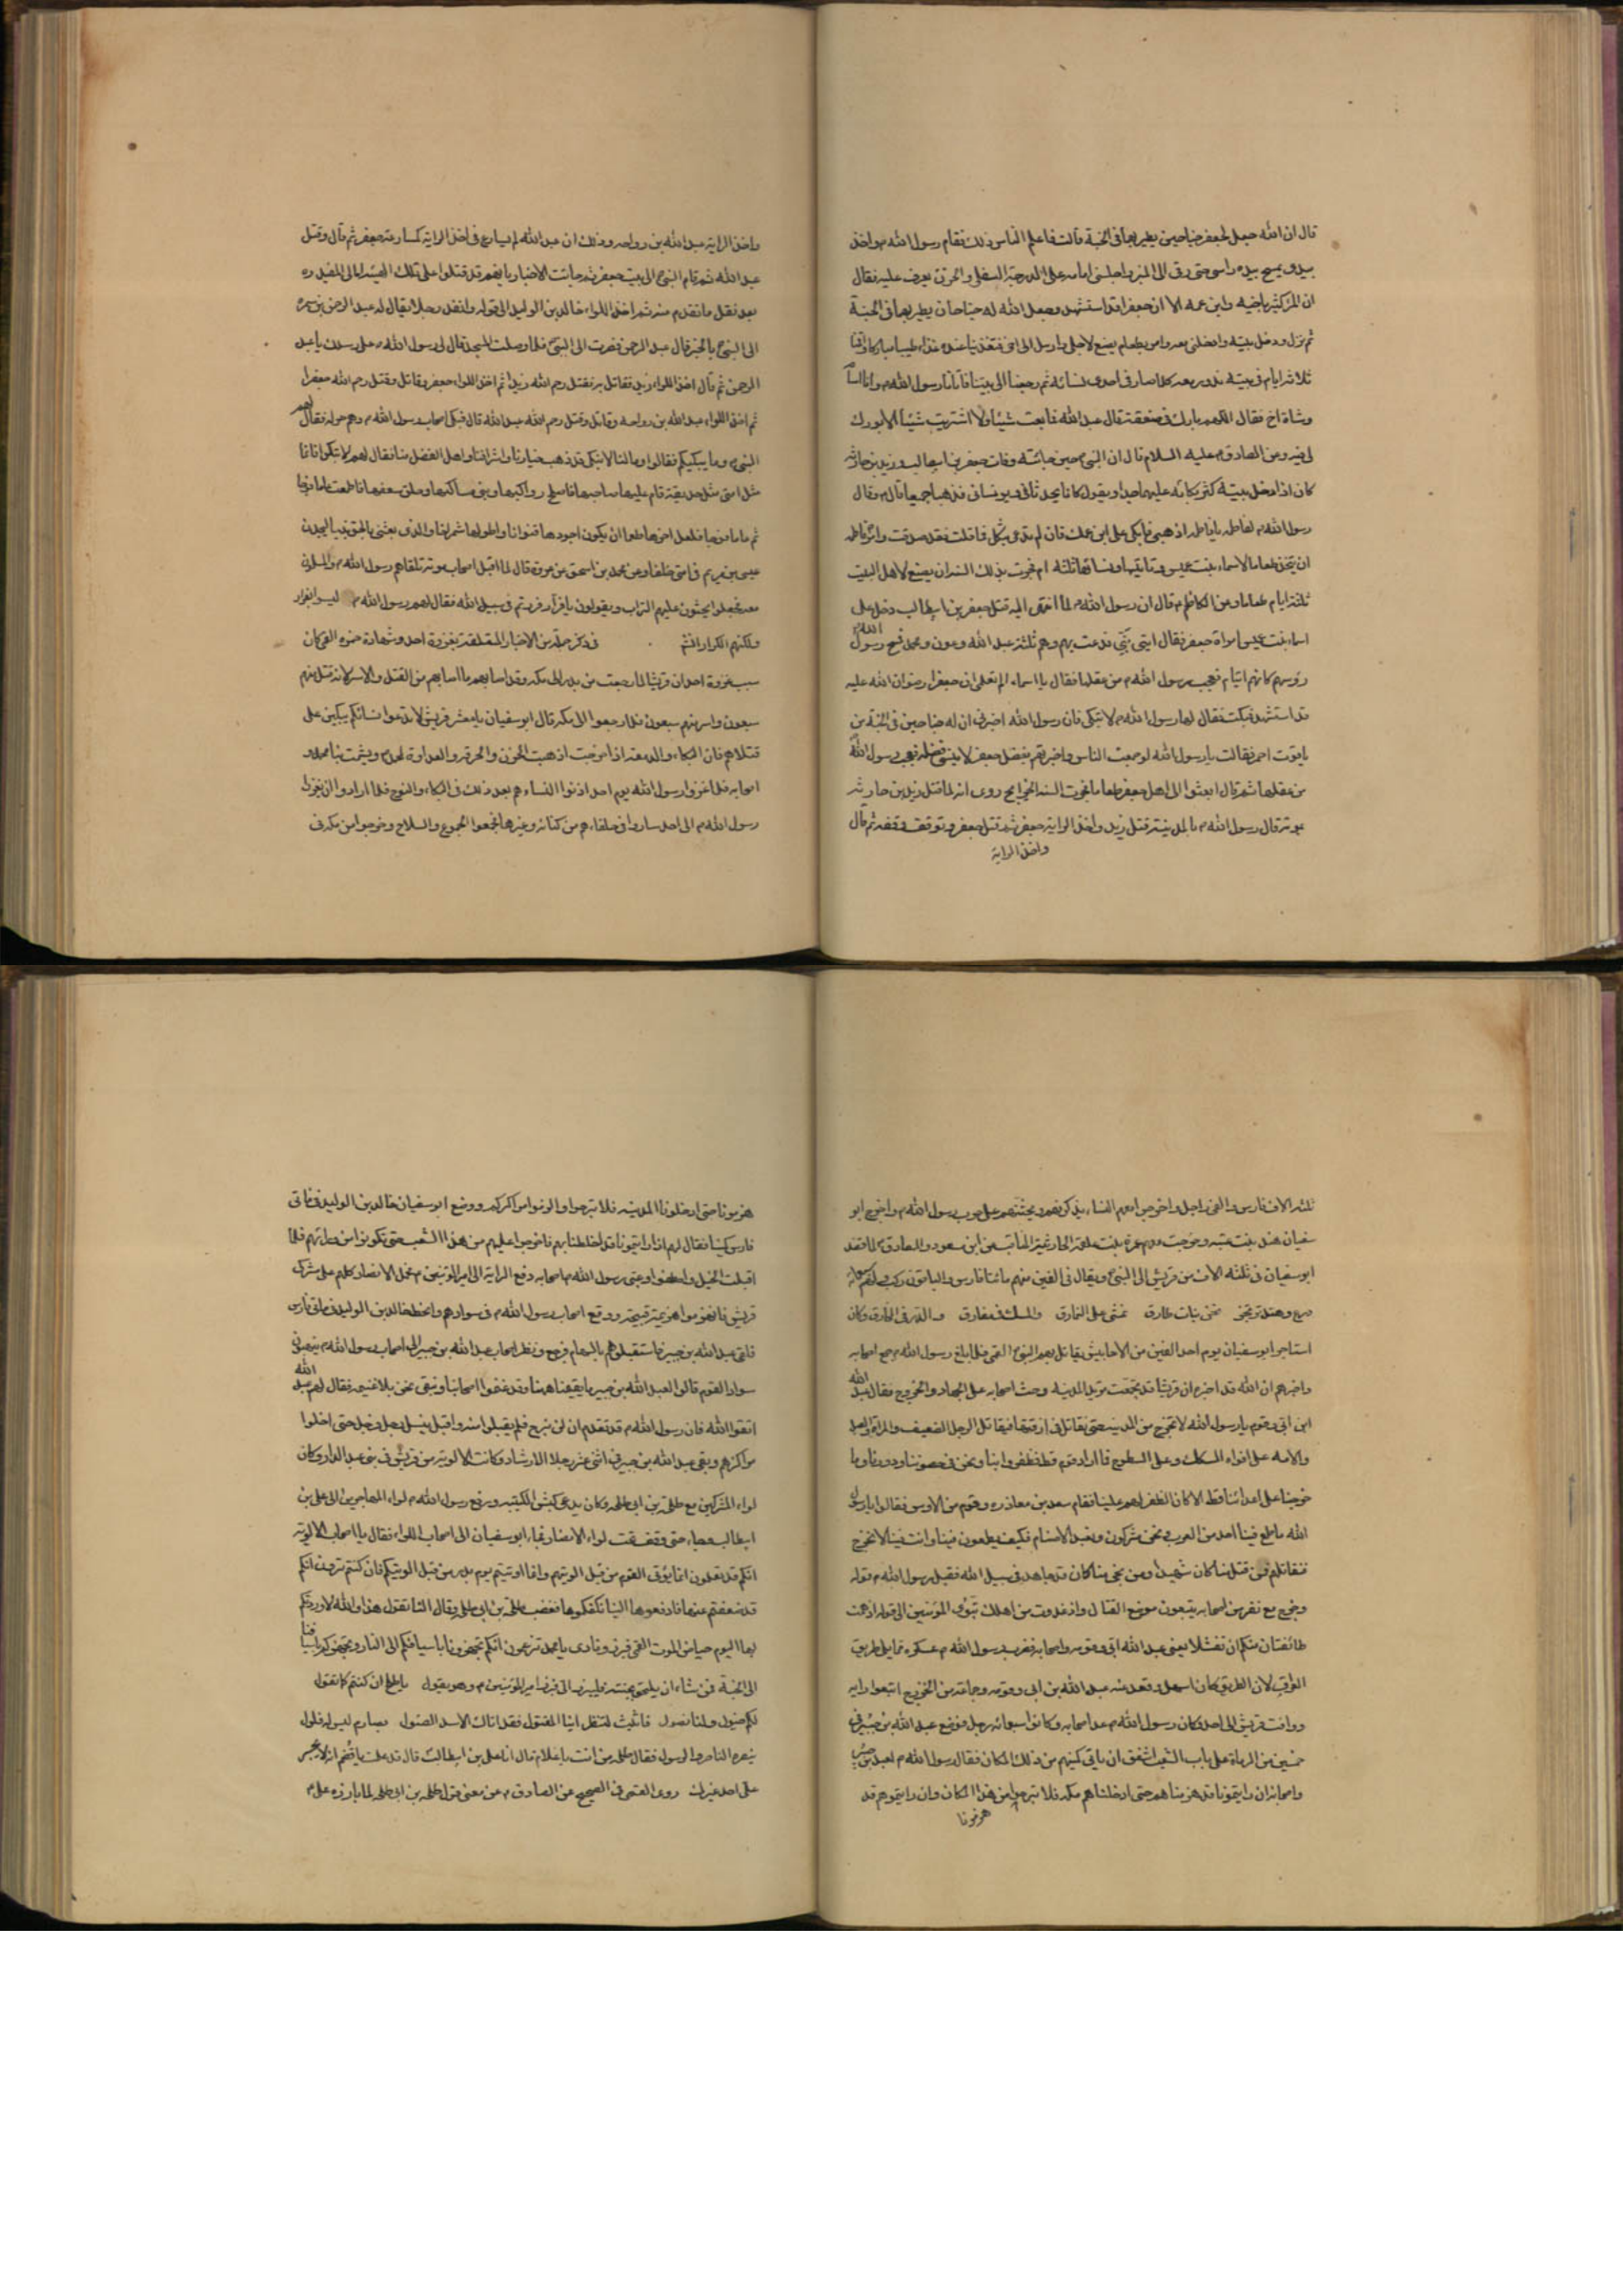 قال ان الله جعل لجعفر جناحين يطير بهما في الجنة قالت فاعلم الناس ذلك فقام رسول الله م واخذ
بيدي يمسح بيده راسي حتى رقى الى المنبر واجلسني امامه على الدرجة السفلى والحزن يعرف عليه فقال
ان المرء كثير باخيه وابن عمه الا ان جعفرا قد استشهد وجعل الله له جناحان يطير بهما في الجنة
ثم نزل ودخل بيته وادخلني معه وامر بطعام يصنع لاجلي وارسل الى اخي فتغدينا عنده غذاء طيبا مباركا واقمنا
ثلاثة ايام في بيته ندور معه كلما صار في احدى نسائه ثم رجعنا الى بيتنا فاتانا رسول الله م وانا اساوم
بشاة اخ فقال اللهم بارك في صفقته قال عبد الله فما بعت شيئا ولا اشتريت شيئا الا بورك
لي فيه وعن الصادق عليه السلام قال ان النبي حين جائته وفات جعفر بن ابيطالب وزيد بن حارثه
كان اذا دخل بيته كثر بكائه عليهما جدا ويقول كانا يحدثاني ويونساني فذهبا جميعا قال م وقال
رسول الله م لفاطمه يا فاطمه اذهبي فابكي على ابن عمك فان لم تدعي بثكل فما قلت فقد صدقت وامر فاطمه
ان تتخذ طعاما لاسماء بنت عميس وتاتيها ونسائها ثلثه ايام فجرت بذلك السنه ان يصنع لاهل البيت
ثلثة ايام طعاما وعن الكاظم م قال ان رسول الله م لما انتهى اليه قتل جعفر بن ابيطالب دخل على
اسماء بنت عميس امراة جعفر فقال ايني بني فدعت بهم وهم ثلثة عبد الله وعون ومحمد فمسح رسول الله م
رؤسهم كانهم ايتام فعجب رسول الله م من عقلها فقال يا اسماء الم تعلمي ان جعفرا رضوان الله عليه
قد استشهد فبكت فقال لها رسول الله م لا تبكي فان رسول الله اخبرني ان له جناحين في الجنة من
ياقوت احمر فقالت يا رسول الله لو جمعت الناس واخبرتهم بفضل جعفر لا ينسى فضله فعجب رسول الله
من عقلها ثم قال ابعثوا الى اهل جعفر طعاما فجرت السنه روى انه لما قتل زيد بن حارثه
بموته قال رسول الله م بالمدينة قتل زيد واخذ الراية جعفر ثم قتل جعفر وتوقف وقفه ثم قال
واخذ الراية
واخذ الراية عبد الله بن رواحه وذلك ان عبد الله لم يسارع في اخذ الراية كمسارعة جعفر ثم قال وقتل
عبد الله ثم قام النبي الى بيت جعفر ثم جائت الاخبار بانهم قد قتلوا على تلك الهيئه امالي المفيد ره
بعد نقل ما تقدم منه ثم اخذ اللواء خالد بن الوليد الى قوله وانفذ رجلا يقال له عبد الرحمن بن سمره
الى النبي بالخبر قال عبد الرحمن فصرت الى النبي فلما وصلت المسجد قال لي رسول الله م على رسلك يا عبد
الرحمن ثم قال اخذ اللواء زيد فقاتل به فقتل رحم الله زيدا ثم اخذ اللواء جعفر وقاتل وقتل رحم الله جعفرا
ثم اخذ اللواء عبد الله بن رواحه وقاتل وقتل رحم الله عبد الله قال فبكى اصحاب رسول الله م وهم حوله فقال لهم
النبي م وما يبكيكم فقالوا وما لنا لا نبكي وقد ذهب خيارنا واشرافنا واهل الفضل منا فقال لهم لا تبكوا فانما
مثل امتي مثل حديقة قام عليها صاحبها فاصلح رواكبها وبنى مساكنها وحلق سعفها فاطعمت عاما فوجا
ثم عاما فوجا فلعل اخرها طعما ان يكون اجودها قنوانا واطولها شمراخا والذي بعثني بالحق نبيا ليجدن
عيسى بن مريم في امتي خلفا وعن محمد بن اسحق عن عروة قال لما اقبل اصحاب موته تلقاهم رسول الله م والمسلمون
معه فجعلوا يحثون عليهم التراب ويقولون يا فرار فررتم في سبيل الله فقال لهم رسول الله م ليسوا بفرار
ولكنهم الكرار انش في ذكر جملة من الاخبار المتعلقة بغزوة احد وشهادة حمزه القمي كان
سبب غزوة احد ان قريشا لما رجعت من بدر الى مكه وقد اصابهم ما اصابهم من القتل والاسر لانه قتل منهم
سبعون واسر منهم سبعون فلما رجعوا الى مكه قال ابو سفيان يا معشر قريش لا تدعوا نسائكم يبكين على
قتلاهم فان البكاء والدمعه اذا خرجت اذهبت الحزن والحرقه والعداوة لمحمد ويشمت بنا محمد و
اصحابه فلما غزوا رسول الله يوم احد اذنوا النساءهم بعد ذلك في البكاء والنوح فلما ارادوا ان يغزوا
رسول الله م الى احد ساروا في حلفاءهم من كنانه وغيرها فجمعوا الجموع والسلاح وخرجوا من مكه في
ثلثه الاف فارس والفي راجل واخرجوا معهم النساء يذكرنهم ويحثنهم على حرب رسول الله م واخرج ابو
سفيان هند بنت عتبه وخرجت معهم عمرة بنت علقمه الحارثيه المناقب عن ابن مسعود والصادق لما قصد
ابو سفيان في ثلثه الاف من قريش الى النبي ويقال في الفين منهم مائتا فارس والباقون ركب ولهم سبعمائه
درع وهند ترتجز نحن بنات طارق نمشي على النمارق والمسك في مفارق والدر في المخانق وكان
استاجر ابو سفيان يوم احد الفين من الاحابيش يقاتل بهم النبي القمي فلما بلغ رسول الله م جمع اصحابه
واخبرهم ان الله قد اخبره ان قريشا قد تجمعت تريد المدينه وحث اصحابه على الجهاد والخروج فقال عبد الله
ابن ابي وقوم يا رسول الله لا تخرج من المدينه حتى نقاتل في ازقتها فيقاتل الرجل الضعيف والمراة والعبد
والامه على افواه السكك وعلى السطوح فما اراد قوم قط فظفروا بنا ونحن في حصوننا ودورنا وما
خرجنا على اعدائنا قط الا كان الظفر لهم علينا فقام سعد بن معاذ ره وقوم من الاوس فقالوا يا رسول
الله ما طمع فينا احد من العرب ونحن مشركون ونعبد الاصنام فكيف يطمعون فينا وانت فينا لا نخرج
فنقاتلهم فمن قتل منا كان شهيدا ومن نجى منا كان قد جاهد في سبيل الله فقبل رسول الله م قوله
وخرج مع نفر من اصحابه يتبعون موضع القتال واذ غدوت من اهلك تبوء المؤمنين الى قوله اذ همت
طائفتان منكم ان تفشلا يعني عبد الله ابي وقومه واصحابه فضرب رسول الله م عسكره مما يلي طريق
العراق لان الطريق كان اسهل وقعد عنه عبد الله بن ابي وقومه وجماعة من الخزرج اتبعوا رايه
ووافت قريش الى احد وكان رسول الله م عد اصحابه وكانوا سبعمائه رجل فوضع عبد الله بن جبير في
خمسين من الرماة على باب الشعب اشفق ان ياتي كمينهم من ذلك المكان فقال رسول الله م لعبد بن جبير
واصحابه ان رايتمونا قد هزمناهم حتى ادخلناهم مكه فلا تبرحوا من هذا المكان وان رايتموهم قد
هزمونا
هزمونا حتى ادخلونا المدينه فلا تبرحوا والزموا مراكزكم ووضع ابو سفيان خالد بن الوليد في مائتي
فارس كمينا فقال لهم اذا رايتمونا قد اختلطنا بهم فاخرجوا عليهم من هذا الشعب حتى تكونوا من ورائهم فلما
اقبلت الخيل واصطفوا وعبى رسول الله م اصحابه دفع الراية الى امير المؤمنين م فحمل الانصار كلهم على مشركي
قريش فانهزموا هزيمة قبيحه ووقع اصحاب رسول الله م في سوادهم وانحط خالد بن الوليد في مائتي فارس
فلقى عبد الله بن جبير فاستقبلوهم بالسهام فرجع ونظر اصحاب عبد الله بن جبير الى اصحاب رسول الله م ينهبون
سواد القوم قالوا لعبد الله بن جبير ما يقيمنا ههنا وقد غنموا اصحابنا ونبقى نحن بلا غنيمه فقال لهم عبد الله
اتقوا الله فان رسول الله م قد تقدم ان لن نبرح فلم يقبلوا منه واقبل ينسل رجل فرجل حتى اخلوا
مراكزهم وبقى عبد الله بن جبير في اثنى عشر رجلا الارشاد وكانت الالويه من قريش في بني عبد الدار وكان
لواء المشركين مع طلحة بن ابي طلحه وكان يدعى كبش الكتيبه ودفع رسول الله م لواء المهاجرين الى علي بن
ابيطالب وجاء حتى وقف تحت لواء الانصار فجاء ابو سفيان الى اصحاب اللواء فقال يا اصحاب الالويه
انكم قد تعلمون انما يؤتى القوم من قبل الويتهم وانما اوتيتم يوم بدر من قبل الويتكم فان كنتم ترون انكم
قد ضعفتم عنها فادفعوها الينا نكفكموها فغضب طلحة بن ابي طلحه وقال النا تقول هذا والله لاوردنكم
بها اليوم حياض الموت القمي فبرز ونادى يا محمد تزعمون انكم تجهزونا باسيافكم الى النار ونجهزكم باسيافنا
الى الجنة فمن شاء ان يلحق بجنته فليبرز الي فبرز امير المؤمنين م وهو يقول يا طلح ان كنتم كما تقول
لكم خيول ولنا نصول فاثبت لننظر اينا المقتول فقد اتاك الاسد الصئول بصارم ليس له فلول
ينصره الناصر والرسول فقال طلحه من انت يا غلام قال انا علي بن ابيطالب قال قد علمت يا قضم انه لا يجسر
على احد غيرك روى القمي في الصحيح عن الصادق م عن معنى قول طلحه بن ابي طلحه لما بارزه علي م